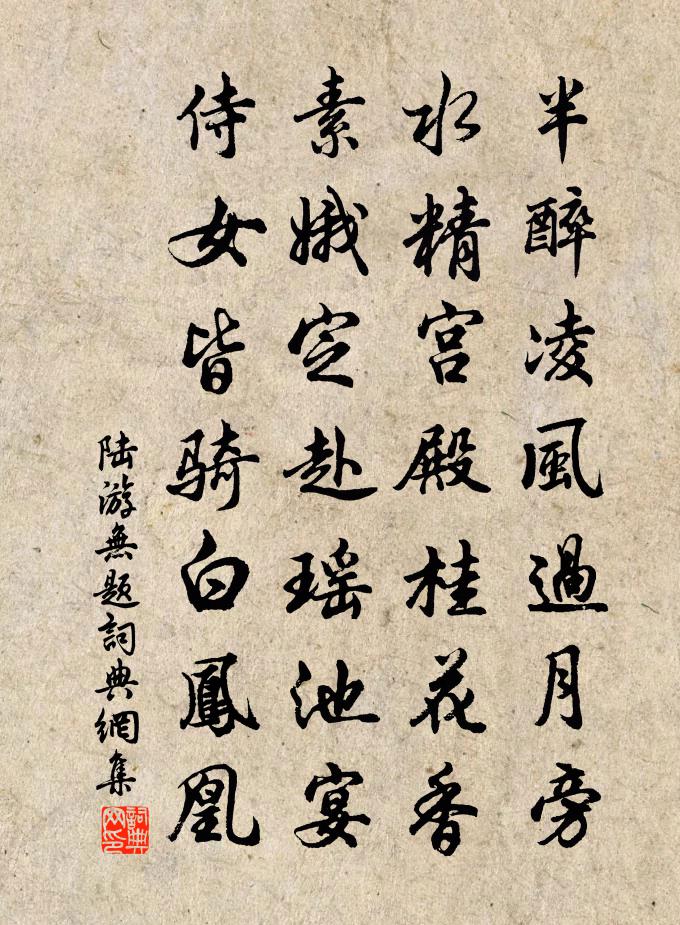 半醉凌風過月旁
水精宮殿桂花香
素娥定赴瑤池宴
侍女皆騎白鳳凰
陆游無題詞典網集
詞典网印